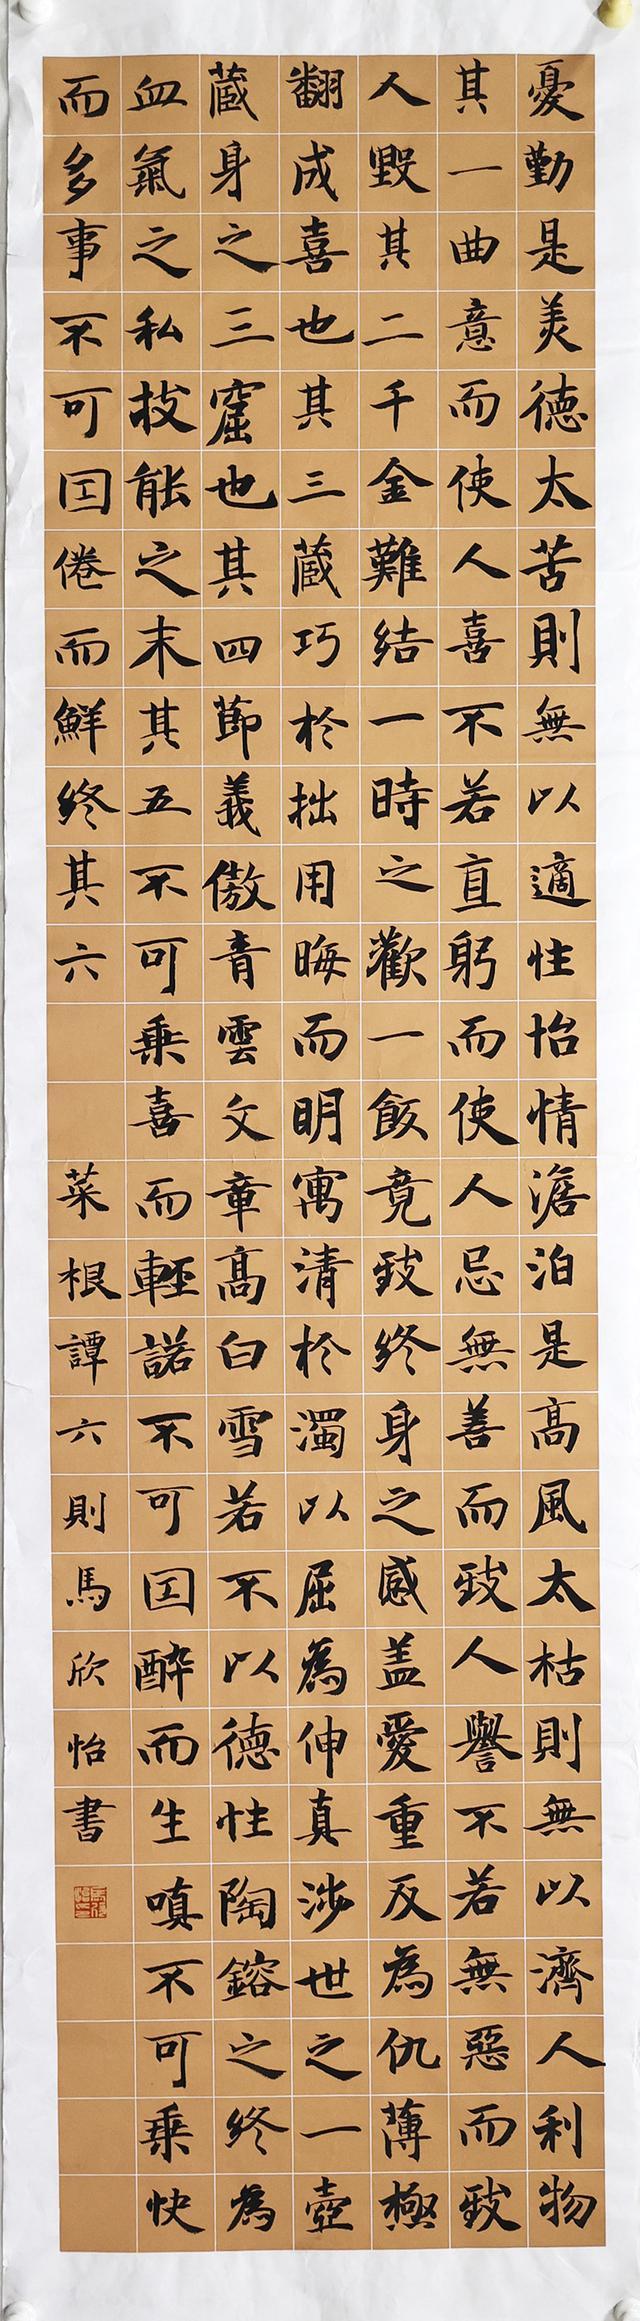 憂勤是美德太苦則無以適性怡情澹泊是高風太枯則無以濟人利物
其一曲意而使人喜不若直躬而使人忌無善而致人譽不若無惡而致
人毀其二千金難結一時之歡一飯竟致終身之感盖愛重反為仇薄極
翻成喜也其三藏巧於拙用晦而明寓清於濁以屈為伸真涉世之一壺
藏身之三窟也其四節義傲青雲文章高白雪若不以德性陶鎔之終為
血氣之私技能之末其五不可乘喜而輕諾不可因醉而生嗔不可乘快
而多事不可因倦而鮮終其六
菜根譚六則馬欣怡書